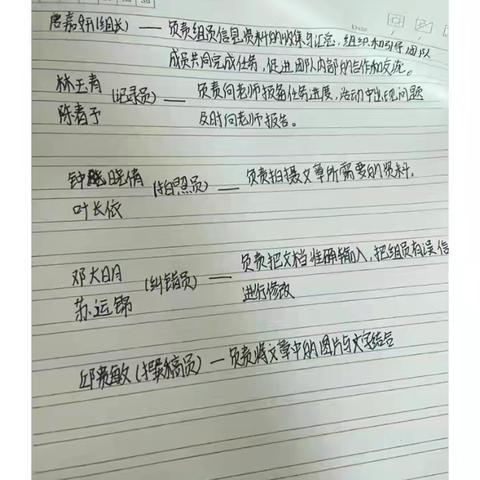 唐嘉妍(组长) — 负责组员信息资料的收集与汇总，组织和引导团队
成员共同完成任务，促进团队内部的合作和交流。
林玉青 (记录员) — 负责向老师报备任务进展，活动中出现问题
陈春予 及时向老师报告。
钟晓倩 (拍照员) — 负责拍摄文章所需要的资料。
叶长依
邓大明 (纠错员) — 负责把文档准确输入，把组员有误信
苏运锦 进行修改
邱贵敏 (撰稿员) — 负责将文章中的图片与文字结合